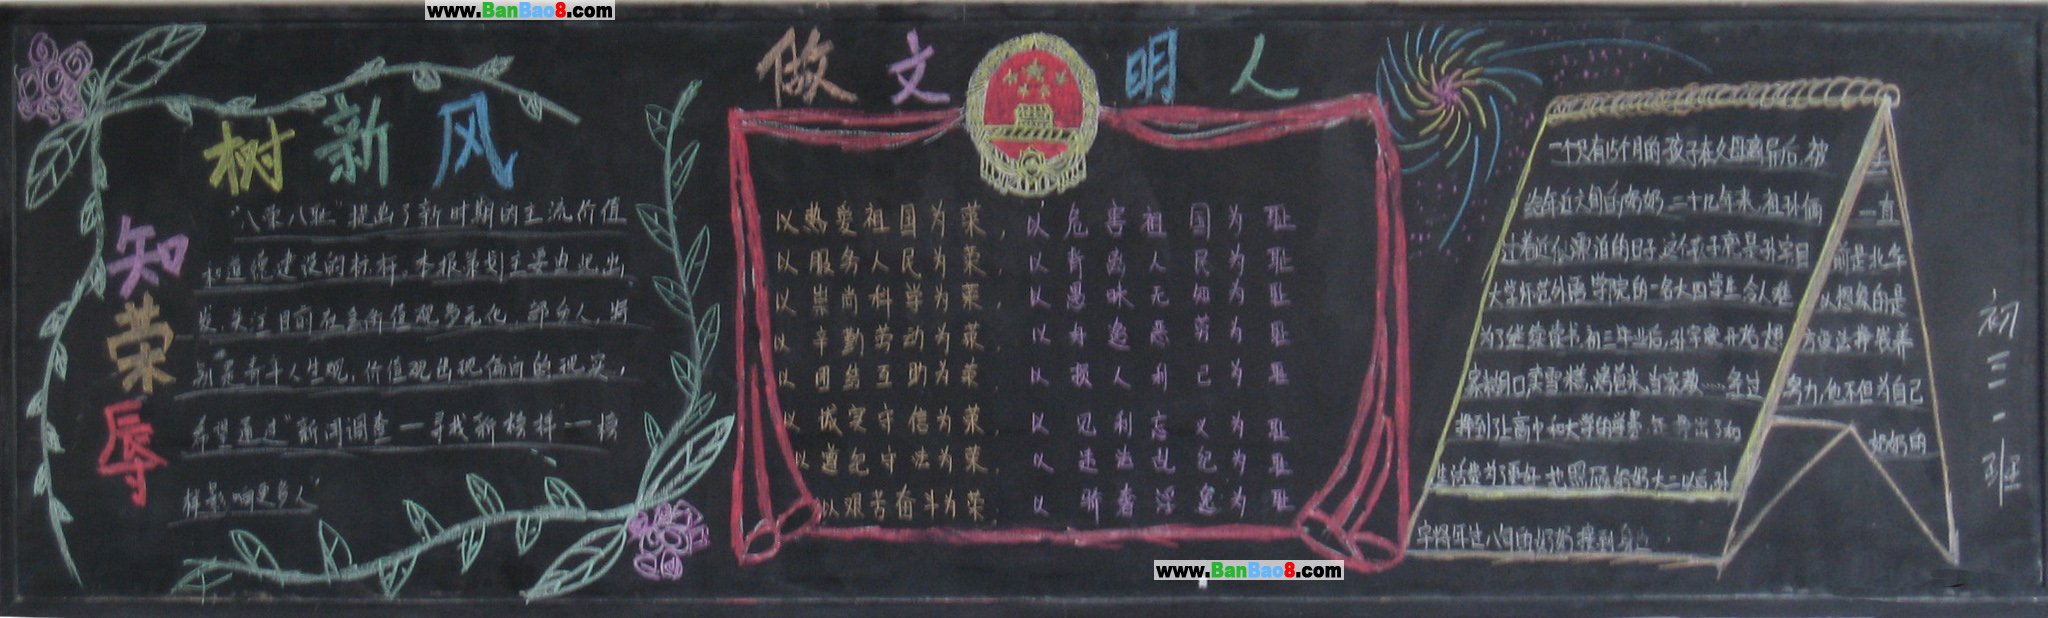 www.BanBao8.com
树新风
知荣辱
"八荣八耻"提出了新时期的主流价值
和道德建设的标杆。本报策划主要由此出
发,关注目前社会价值观多元化,部分人,特
别是青年人生观,价值观出现偏向的现实,
希望通过"新闻调查—寻找新榜样"—榜
样影响更多人"
做文明人
以热爱祖国为荣,以危害祖国为耻
以服务人民为荣,以背离人民为耻
以崇尚科学为荣,以愚昧无知为耻
以辛勤劳动为荣,以好逸恶劳为耻
以团结互助为荣,以损人利己为耻
以诚实守信为荣,以见利忘义为耻
以遵纪守法为荣,以违法乱纪为耻
以艰苦奋斗为荣,以骄奢淫逸为耻
一个只有15个月的孩子在父母离异后,被
给年近六旬的奶奶,二十几年来,祖孙俩一直
过着近似漂泊的日子这个孩子就是孙字目前是北华
大学师范外语学院的一名大四学生令人难以想象的是
为了继续读书初三毕业后,孙字就开始想方设法挣钱养
家校门口卖雪糕,烤苞米,当家教……经过努力,他不但为自己
挣到了上高中和大学的学费,还挣出了和奶奶的
生活费为了更好地照顾奶奶大二以后,孙
字把年过八旬的奶奶接到身
初三·一班
www.BanBao8.com